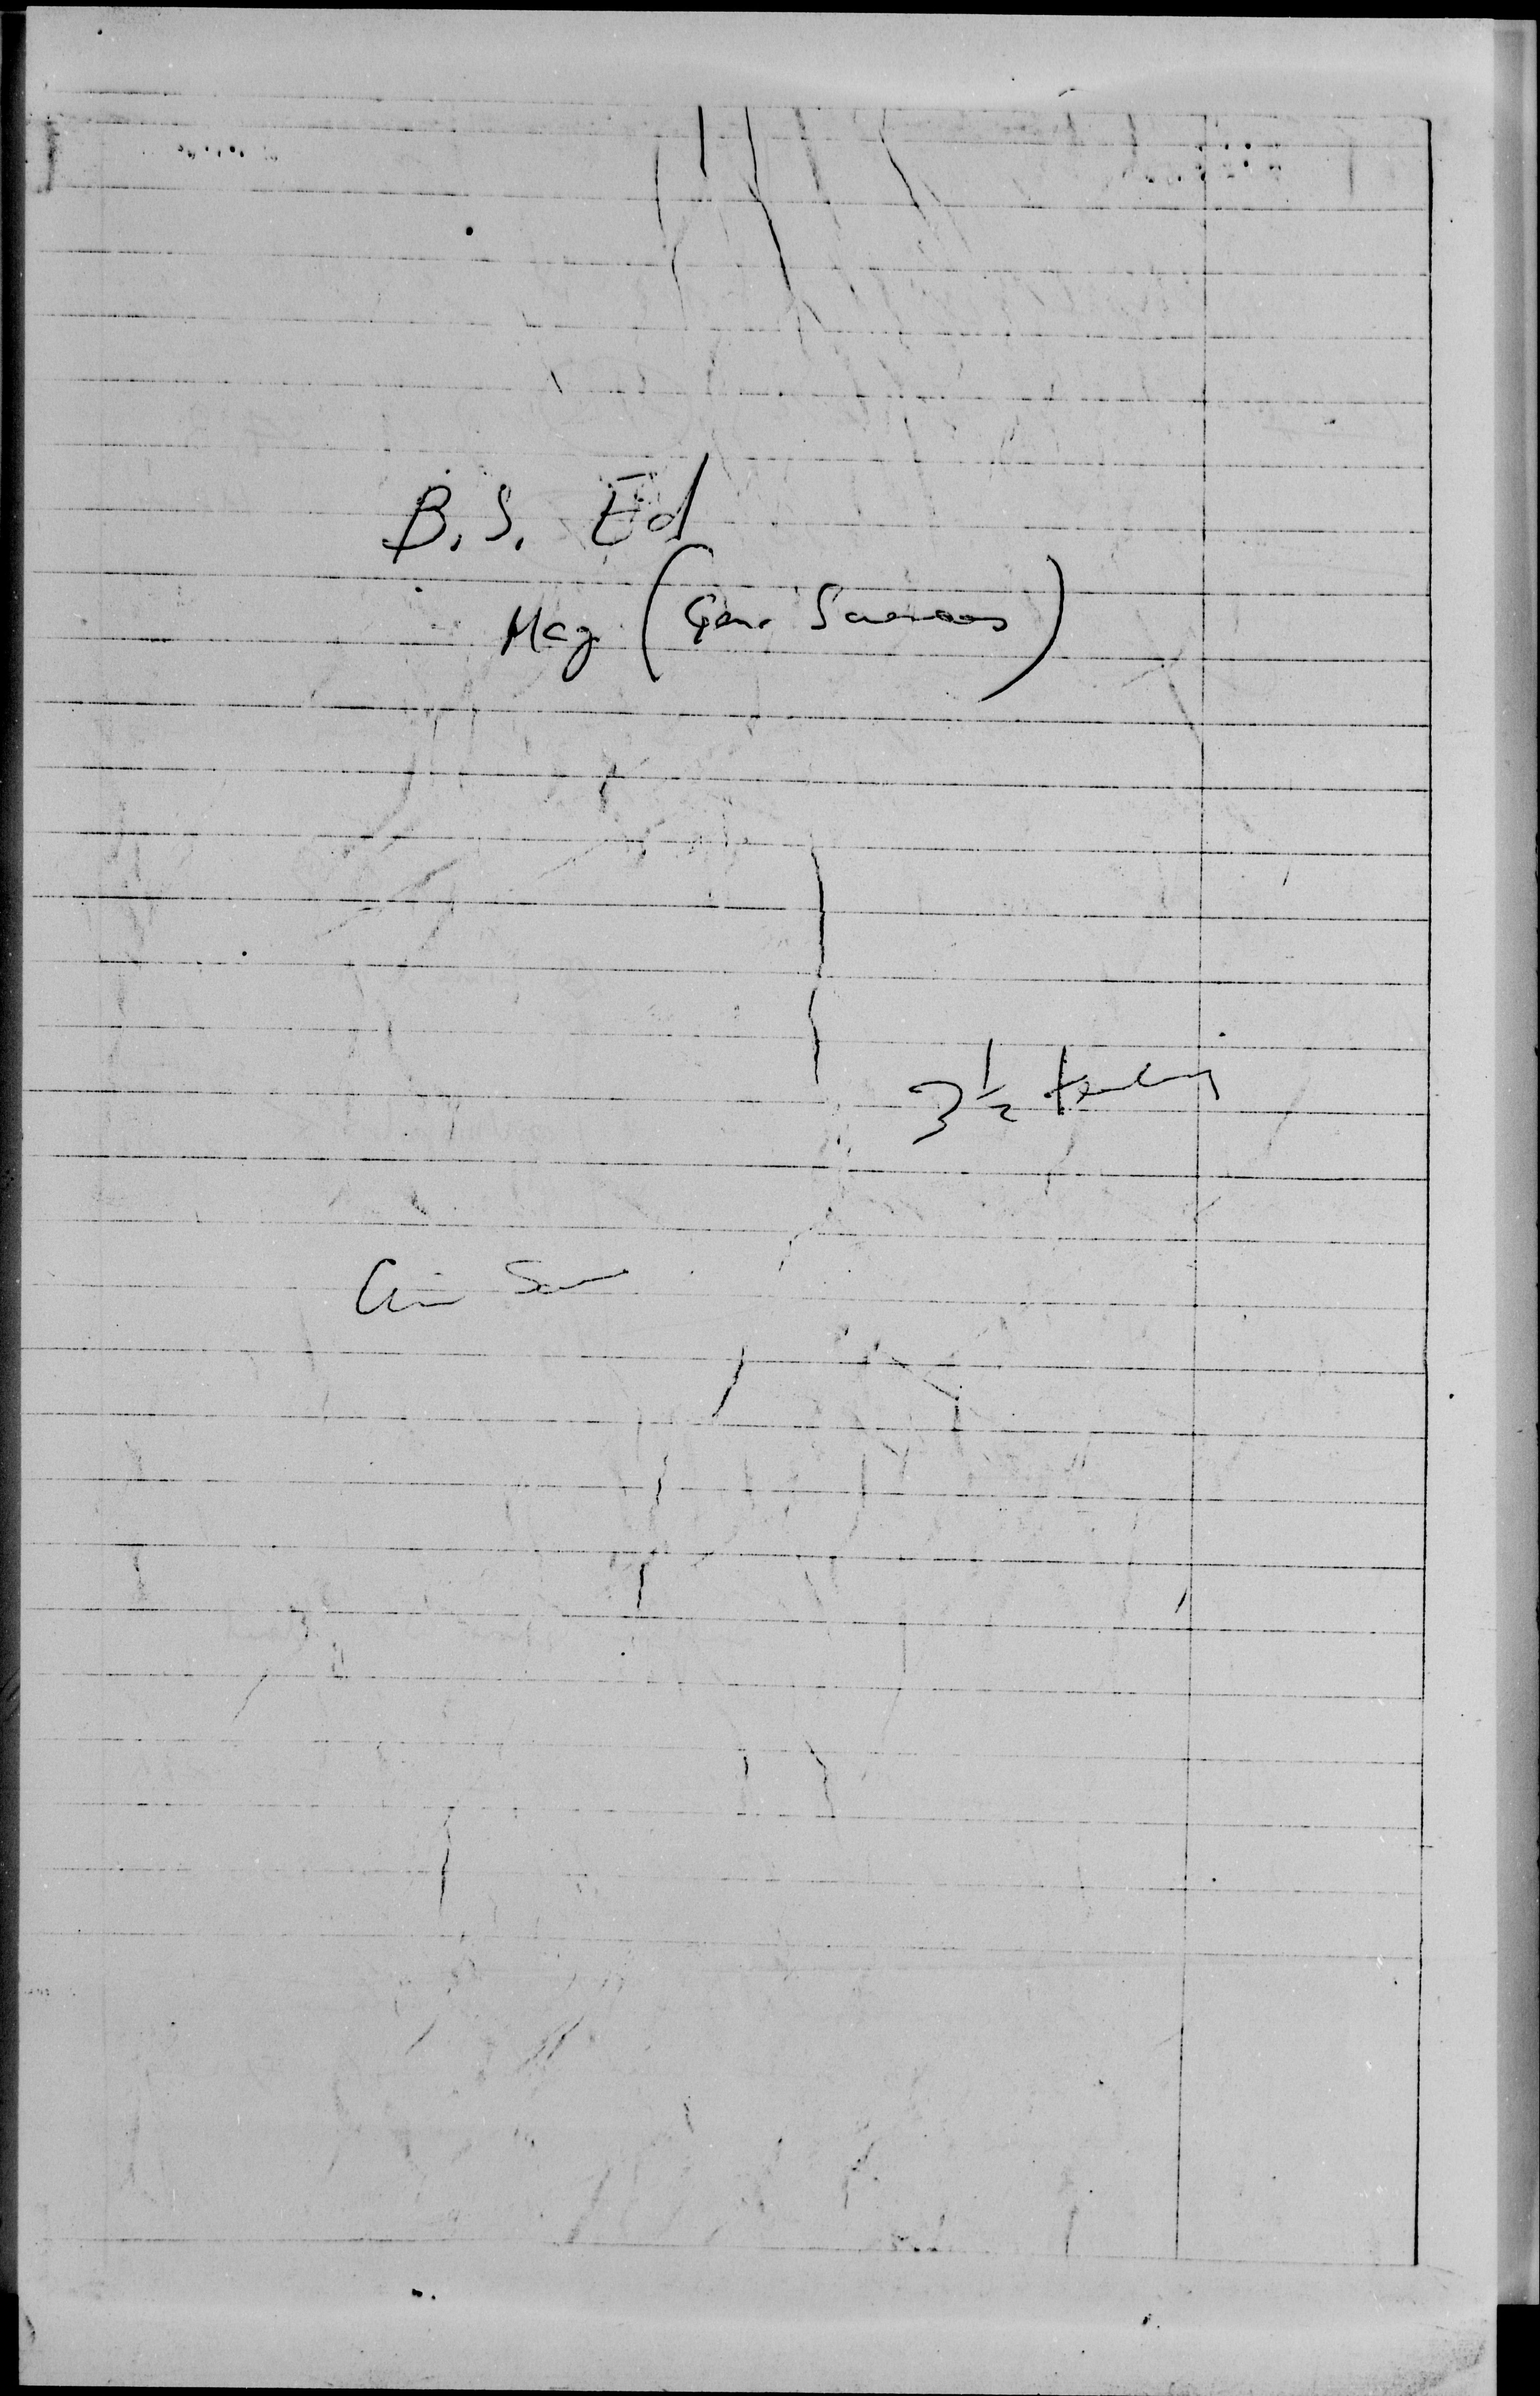 B.S. Ed
Maj (Gen. Sciences)
3 1/2 teaching
Civ Ser